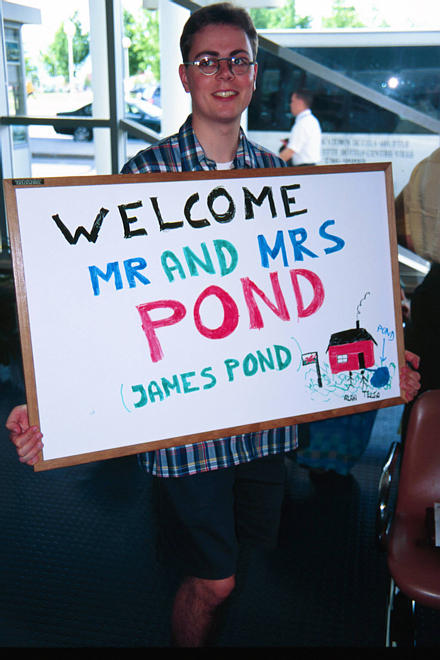 WELCOME
MR AND MRS
POND
(JAMES POND)
POND